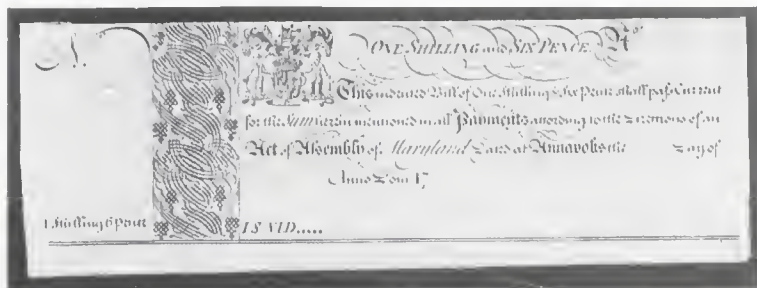 N.
ONE SHILLING and SIX PENCE. N.o
This indented Bill of One Shilling & Six Pence shall pass Current
for the Sum herein mentioned in all Payments according to the Directions of an
Act of Assembly of Maryland Dated at Annapolis the Day of
Anno Dom 17
1 Shilling 6 Pence
IS VID.....